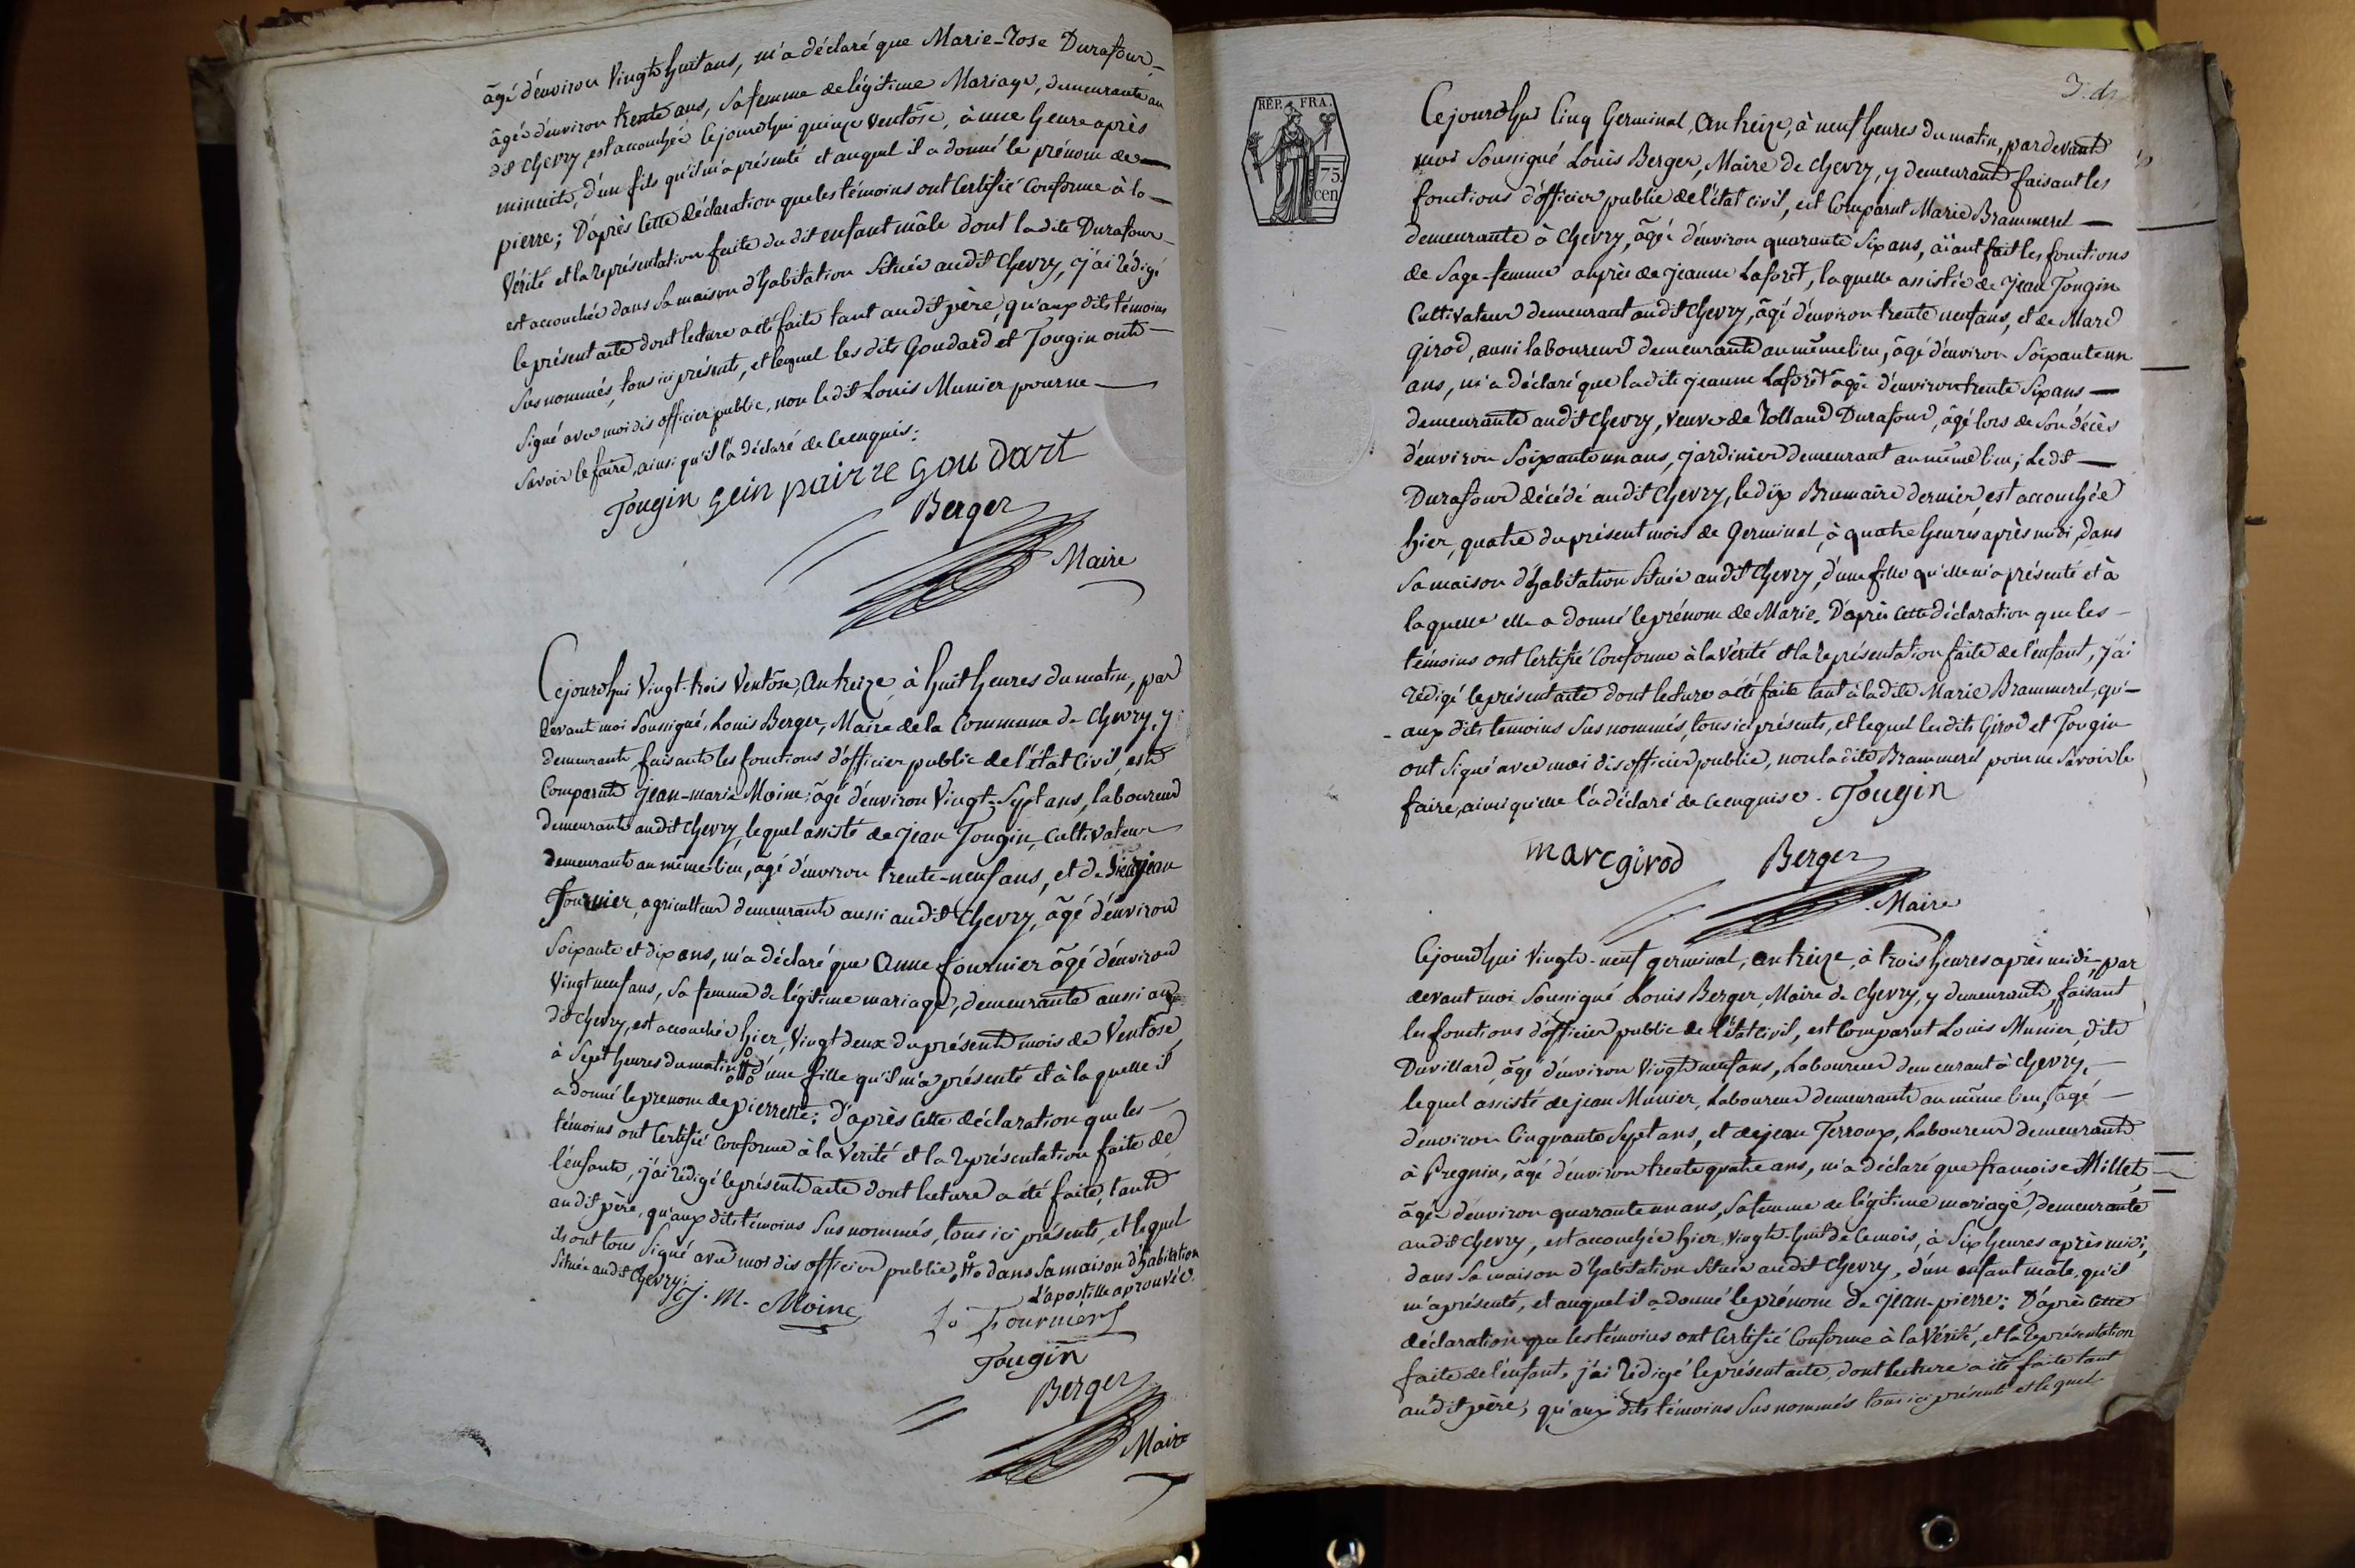 âgé d'environ Vingt huit ans, m'a déclaré que Marie-Rose Durafour-
âgée d'environ trente ans, sa femme de légitime Mariage, demeurante au
dit Chevry, est accouchée cejourd'hui quinze Ventôse, à une heure après
minuit, d'un fils qu'il m'a présenté et auquel il a donné le prénom de
pierre; D'après cette déclaration que les témoins ont Certifié Conforme à la
Vérité et la représentation faite du dit enfant mâle dont la dite Durafour
est accouchée dans sa maison d'habitation Située audit Chevry, j'ai rédigé
le présent acte dont lecture a été faite tant audit père, qu'aux dits témoins
Sus nommés, tous ici présents, et lequel les dits Goudard et Tougin ont
Signé avec moi dis officier public, non le dit Louis Munier pour ne
Savoir le faire, ainsi qu'il l'a déclaré de ce enquis:
Tougin gein pairre goudart
Berger
Maire
Cejourd'hui Vingt-trois Ventôse, an treize, à huit heures du matin, par
devant moi Soussigné, Louis Berger, Maire de la Commune de Chevry, y
demeurant, faisant les fonctions d'officier public de l'état Civil, est
Comparut Jean-marie Moine, âgé d'environ Vingt-Sept ans, laboureur
demeurant audit Chevry, lequel assisté de jean Tougin, Cultivateur
demeurant au même lieu, âgé d'environ trente-neuf ans, et de jean
Fournier, agriculteur demeurant aussi audit Chevry, âgé d'environ
Soixante et dix ans, m'a déclaré que Anne fournier âgé d'environ
Vingt neuf ans, sa femme de légitime mariage, demeurante aussi au
dit Chevry, est accouchée hier, Vingt deux du présent mois de Ventôse,
à Sept heures du matin # d'une fille qu'il m'a présenté et à laquelle il
a donné le prenom de pierrette: D'après cette déclaration que les
témoins ont Certifié Conforme à la Vérité et la représentation faite de
l'enfant, j'ai rédigé le présent acte dont lecture a été faite, tant
audit père, qu'aux dits témoins Sus nommés, tous ici présents, et lequel
ils ont tous Signé avec moi dis officier public. # dans Sa maison d'habitation
Située audit Chevry; L'apostille aprouvée.
J. M. Moine
Fournier
Tougin
Berger
Maire
REP. FRA.
75
cen
Cejourd'hui Cinq Germinal, An treize, à neuf heures du matin, pardevant
moi Soussigné Louis Berger, Maire de Chevry, y demeurant faisant les
fonctions d'officier public de l'état civil, est Comparut Marie Brammerel
demeurante à Chevry, âgée d'environ quarante Six ans, aïant fait les fonctions
de Sage-femme auprès de jeanne Laforêt, laquelle assistée de Jean Tougin
Cultivateur demeurant audit Chevry, âgé d'environ trente neuf ans, et de Marc
Girod, aussi laboureur demeurant au même lieu, âgé d'environ Soixante un
ans, m'a déclaré que ladite jeanne Laforêt âgée d'environ trente Six ans
demeurante audit Chevry, Veuve de Rolland Durafour, âgé lors de Son décès
d'environ Soixante un ans, jardinier demeurant au même lieu; Ledit
Durafour décédé audit Chevry, le dix Brumaire dernier, est accouchée
hier, quatre du présent mois de Germinal, à quatre heures après midi, dans
Sa maison d'habitation Située audit Chevry, d'une fille qu'elle m'a présenté et à
laquelle elle a donné le prénom de Marie. D'après cette déclaration que les
témoins ont Certifié Conforme à la Vérité et la représentation faite de l'enfant, j'ai
rédigé le présent acte dont lecture a été faite tant à la dite Marie Brammerel, qu'
aux dits temoins Sus nommés, tous ici présents, et lequel les dits Girod et Tougin
ont Signé avec moi dis officier public, non la dite Brammerel pour ne Savoir le
faire, ainsi qu'elle l'a déclaré de ce enquise. Tougin
marc girod Berger
Maire
Cejourd'hui Vingt-neuf germinal, an treize, à trois heures après midi, par
devant moi Soussigné Louis Berger, Maire de Chevry, y demeurant, faisant
les fonctions d'officier public de l'état Civil, est Comparut Louis Munier, dit
Duvillard, âgé d'environ Vingt neuf ans, Laboureur demeurant à Chevry,
lequel assisté de jean Munier, Laboureur demeurant au même lieu, âgé
d'environ Cinquante Sept ans, et de jean Terroux, Laboureur demeurant
à Pregnin, âgé d'environ trente quatre ans, m'a déclaré que françoise Millet,
âgée d'environ quarante un ans, Sa femme de légitime mariage, demeurante
audit Chevry, est accouchée hier, Vingt-huit de ce mois, à Six heures après midi,
dans Sa maison d'habitation Située audit Chevry, d'un enfant mâle, qu'il
m'a présenté, et auquel il a donné le prénom de Jean-pierre: D'après Cette
déclaration que les témoins ont Certifié Conforme à la Vérité, et la représentation
faite de l'enfant, j'ai rédigé le présent acte, dont lecture a été faite tant
audit père, qu'aux dits témoins Sus nommés tous ici présents et lequel